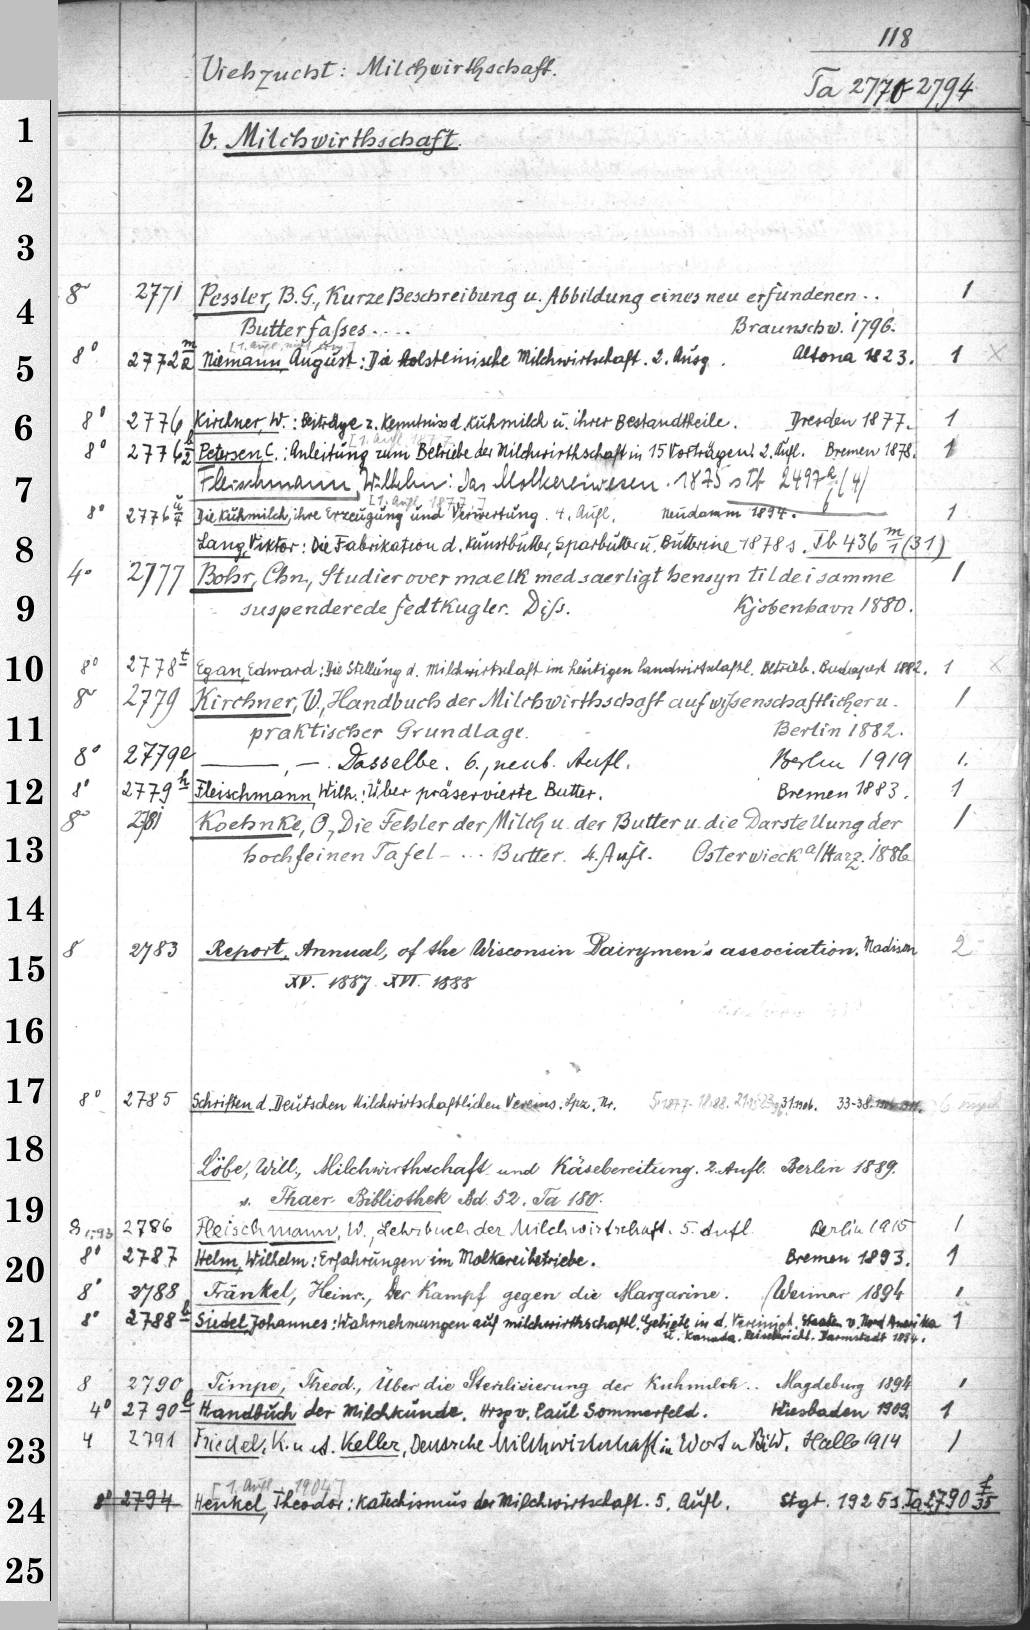 118
Viehzucht: Milchwirthschaft.
Ta 2770-2794
1
b. Milchwirthschaft.
2
3
8 2771 Pessler, B.G., Kurze Beschreibung u. Abbildung eines neu erfundenen .. 1
4
Butterfasses.... Braunschw. 1796.
[1. Aufl. nicht
8° 2772 m/2 Niemann, August: Die holsteinische Milchwirtschaft. 2. Ausg. Altona 1823. 1 X
5
6
8° 2776 Kirchner, W.: Beiträge z. Kenntnis d. Kuhmilch u. ihrer Bestandtheile. Dresden 1877. 1
[1. Aufl. 1877]
8° 2776 Petersen, C.: Anleitung zum Betriebe der Milchwirthschaft in 15 Vorträgen. 2. Aufl. Bremen 1878. 1
7
Fleischmann, Wilhelm: Das Molkereiwesen. 1875 s Tb 2497 (4)
[1. Aufl. 1877.]
8° 2776 Die Kuhmilch, ihre Erzeugung und Verwertung. 4. Aufl. Neudamm 1894. 1
8
Lang, Viktor: Die Fabrikation d. Kunstbutter, Sparbutter u. Butterine 1878 s. Tb 436 m/1 (31)
4° 2777 Bohr, Chn., Studier over maelk med saerligt hensyn til de i samme 1
9
suspenderede fedtkugler. Diss. Kjobenhavn 1880.
10
8° 2778 t Egan, Edward: Die Stellung d. Milchwirtschaft im heutigen landwirtschaftl. Betrieb. Budapest 1882. 1 X
8 2779 Kirchner, W., Handbuch der Milchwirthschaft auf wissenschaftlicher u. 1
11
praktischer Grundlage. Berlin 1882.
8° 2779e ———, —. Dasselbe. 6., neub. Aufl. Berlin 1919 1.
12
8° 2779 h Fleischmann, Wilh.: Über präservierte Butter. Bremen 1883. 1
8 2781 Koehnke, O., Die Fehler der Milch u. der Butter u. die Darstellung der 1
13
hochfeinen Tafel-... Butter. 4. Aufl. Osterwieck a/Harz. 1886
14
15
8 2783 Report, Annual, of the Wisconsin Dairymen's association. Madison 2
XV. 1887. XVI. 1888
16
17
8° 2785 Schriften d. Deutschen Milchwirtschaftlichen Vereins. Lpz. Nr. 33-38.
18
Löbe, Will., Milchwirthschaft und Käsebereitung. 2. Aufl. Berlin 1889.
19
s. Thaer-Bibliothek Bd. 52. Ta 180.
8 2786 Fleischmann, W., Lehrbuch der Milchwirtschaft. 5. Aufl. Berlin 1915 1
20
8° 2787 Helm, Wilhelm: Erfahrungen im Molkereibetriebe. Bremen 1893. 1
8° 2788 Fränkel, Heinr., Der Kampf gegen die Margarine. Weimar 1894 1
21
8° 2788 b Siedel, Johannes: Wahrnehmungen auf milchwirthschaftl. Gebiete in d. Vereinigt. Staaten v. Nord Amerika 1
u. Kanada. Reisebericht. Darmstadt 1894.
22
8 2790 Timpe, Theod., Über die Sterilisierung der Kuhmilch.. Magdeburg 1894 1
4° 2790 b Handbuch der Milchkunde. Hrsg v. Paul Sommerfeld. Wiesbaden 1909. 1
23
4 2791 Friedel, K. u. A. Keller, Deutsche Milchwirtschaft in Wort u. Bild. Halle 1914 1
[1. Aufl. 1904]
24
8° 2794 Henkel, Theodor: Katechismus der Milchwirtschaft. 5. Aufl. Stgt. 1925 s. Ta 2790 f/35
25